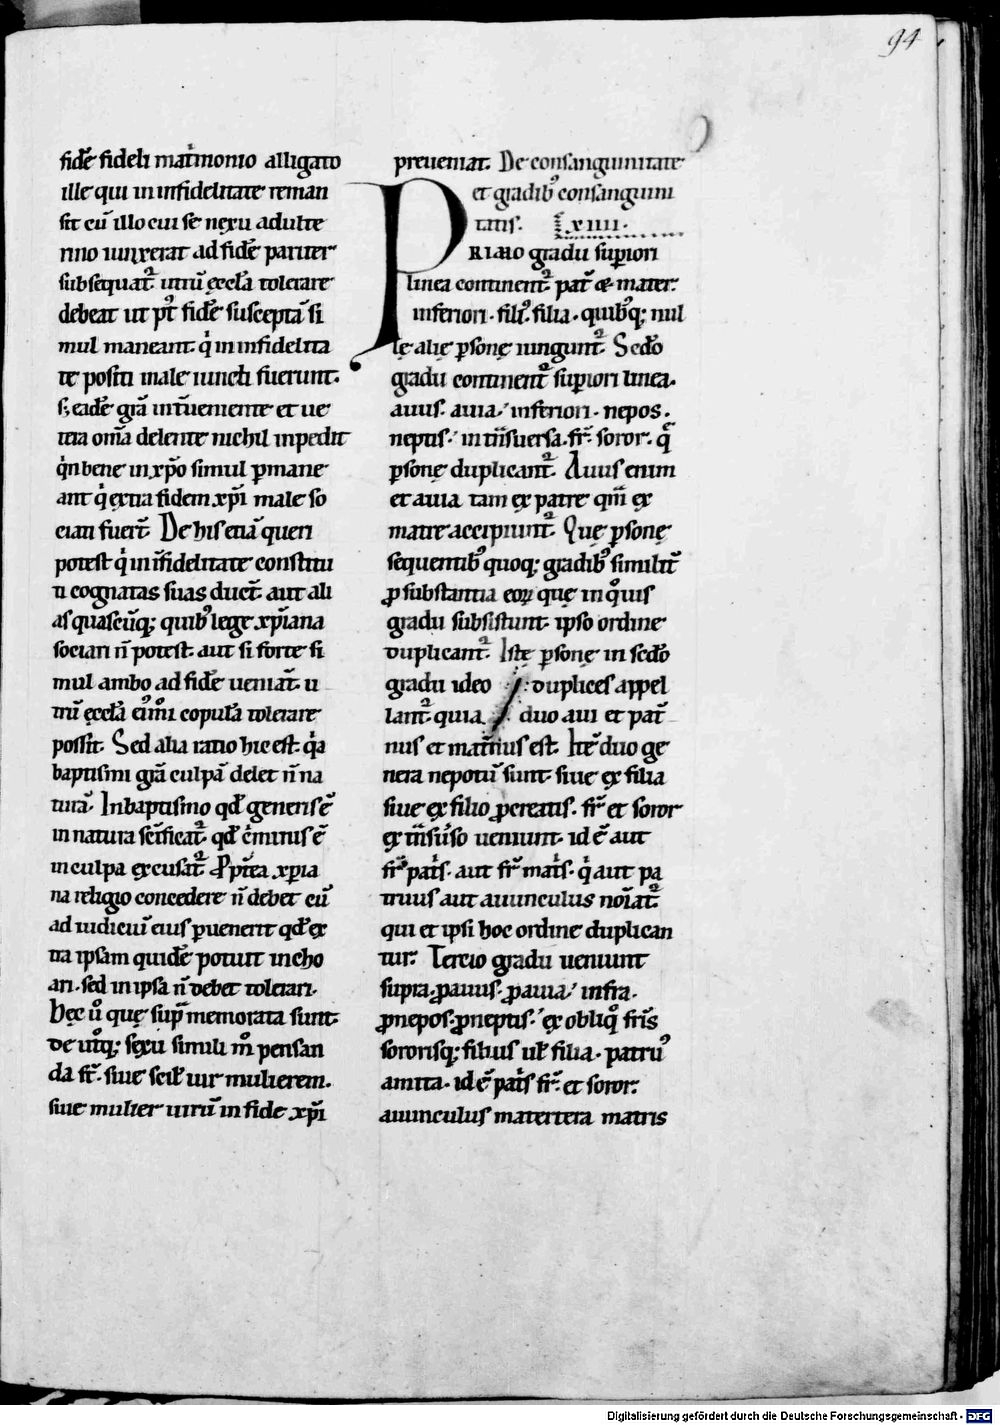 94
fidē fideli mat̄monio alligato
ille qui in infidelitate reman
sit cū illo cui se nexu adulte
rino iunxerat ad fidē pariter
subsequat᷑ utrū ęccl̄a tolerare
debeat ut pꝰt fidē susceptā si
mul maneant qͥ in infidelita
te positi male iuncti fuerunt.
s; eadē grā int̄ueniente et ue
tera om̄a delente nichil inpedit
qͥn bene in xp̄o simul ꝑmane
ant qͥ extra fidem xp̄i male so
ciati fuer̄t. De his etiā queri
potest qͥ in īfidelitate constitu
ti cognatas suas duc̄t aut ali
as quascūq; quibꝰ lege xp̄iana
sociari n̄ potest. aut si forte si
mul ambo ad fidē ueniāt. u
trū ęccl̄a copulā tolerare
possit. Sed alia ratio hic est. qͥa
baptismi grā culpā delet n̄ na
turā. In baptismo qd̄ generis ē
in natura sc̄ificat᷑. qd̄ c̄minis ē
in culpa excusat᷑. Ꝓpt̄ea xp̄ia
na religio concedere n̄ debet cū
ad iudiciū eius ꝑuenerit qd̄ ex
tra ipsam quidē potuit incho
ari. sed in ipsa n̄ debet tolerari.
Hęc ū que sup̄memorata sunt
de ut͛q; sexu simili mͦ pensan
da st̄. siue scil̄ uir mulierem.
siue mulier uirū in fide xp̄i
preueniat. De consanguinitate
et gradibꝰ consanguini
tatis. xiiii.
PRIMO gradu suꝑiori
linea continent᷑ pat̄ & mater.
inferiori. filiꝰ. filia. quibꝰq; nul
lę alię ꝑsonę iungunt᷑. Scd̄o
gradu continent᷑ suꝑiori linea.
auus. auia. inferiori. nepos.
neptis. in t̄nsuersa. fr̄. soror. q̄
ꝑsonę duplicant᷑. Auus enim
et auia tam ex patre qm̄ ex
matre accipiunt᷑. Quę ꝑsonę
sequentibꝰ quoq; gradibꝰ similit̄
ꝓ substantia eoꝝ quę in qͦuis
gradu subsistunt. ipso ordine
duplicant᷑. Istę ꝑsonę in scd̄o
gradu ideo duplices appel
lant᷑. quia duo aui et pat̄
nus et mat̄nus est. It̄e duo ge
nera nepotū sunt. siue ex filia
siue ex filio ꝓcreatis. fr̄ et soror
ex t̄nsūso ueniunt. id ē aut
fr̄ pat̄s. aut fr̄ mat̄s. qͥ aut pa
truus aut auunculus noīat᷑.
qui et ipsi hoc ordine duplican
tur. Tercio gradu ueniunt
supra. ꝓauus. ꝓauia. infra.
ꝓnepos. ꝓneptis. ex obliqͦ fr̄is
sororisq; filius ul̄ filia. patruꝰ
amita. id ē pat̄s fr̄. et soror.
auunculus matertera matris
Digitalisierung gefördert durch die Deutsche Forschungsgemeinschaft - DFG